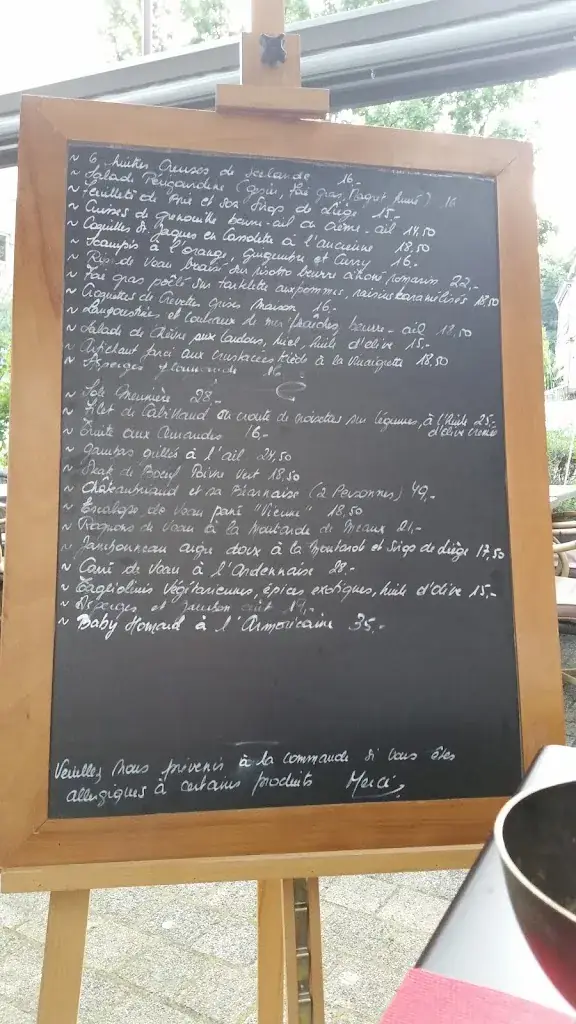 ~ 6 Huîtres Creuses de Zeelande 16.-
~ Salade Périgourdine (gésier, foie gras, Magret fumé) 16
~ Feuilleté de Brie et son Sirop de Liège 15.-
~ Cuisses de grenouille beurre-ail ou crème-ail 14,50
~ Coquilles St Jaques en Cassolette à l'ancienne 18,50
~ Scampis à l'orange, gingembre et Curry 16.-
~ Ris de Veau braisé sur risotto beurre citronné romarin 22.-
~ Foie gras poêlé sur tartelette aux pommes, raisins caramélisés 18,50
~ Croquettes de Crevettes grises maison 16.-
~ Langoustines et couteaux de mer fraîches, beurre-ail 18,50
~ Salade de Chèvre aux lardons, miel, huile d'olive 15.-
~ Artichaut farci aux crustacés tiède à la Vinaigrette 18,50
~ Asperges flamande
~ Sole Meunière 28.-
~ Filet de Cabillaud en croute de noisettes sur légumes, à l'huile 25.-
d'olive
~ Truite aux Amandes 16,-
~ Gambas grillés à l'ail 24,50
~ Steak de Boeuf Poivre Vert 18,50
~ Châteaubriand et sa Béarnaise (2 Personnes) 49,-
~ Escalope de Veau pané "Vienne" 18,50
~ Rognons de Veau à la Moutarde de Meaux 21,-
~ Jambonneau aigre doux à la Moutarde et Sirop de Liège 17,50
~ Carré de Veau à l'Ardennaise 28.-
~ Tagliolinis Végétariennes, épices exotiques, huile d'olive 15,-
~ Asperges et jambon cuit 19,-
~ Baby Homard à l'Armoricaine 35.-
Veuillez nous prévenir à la commande si vous êtes
allergiques à certains produits Merci